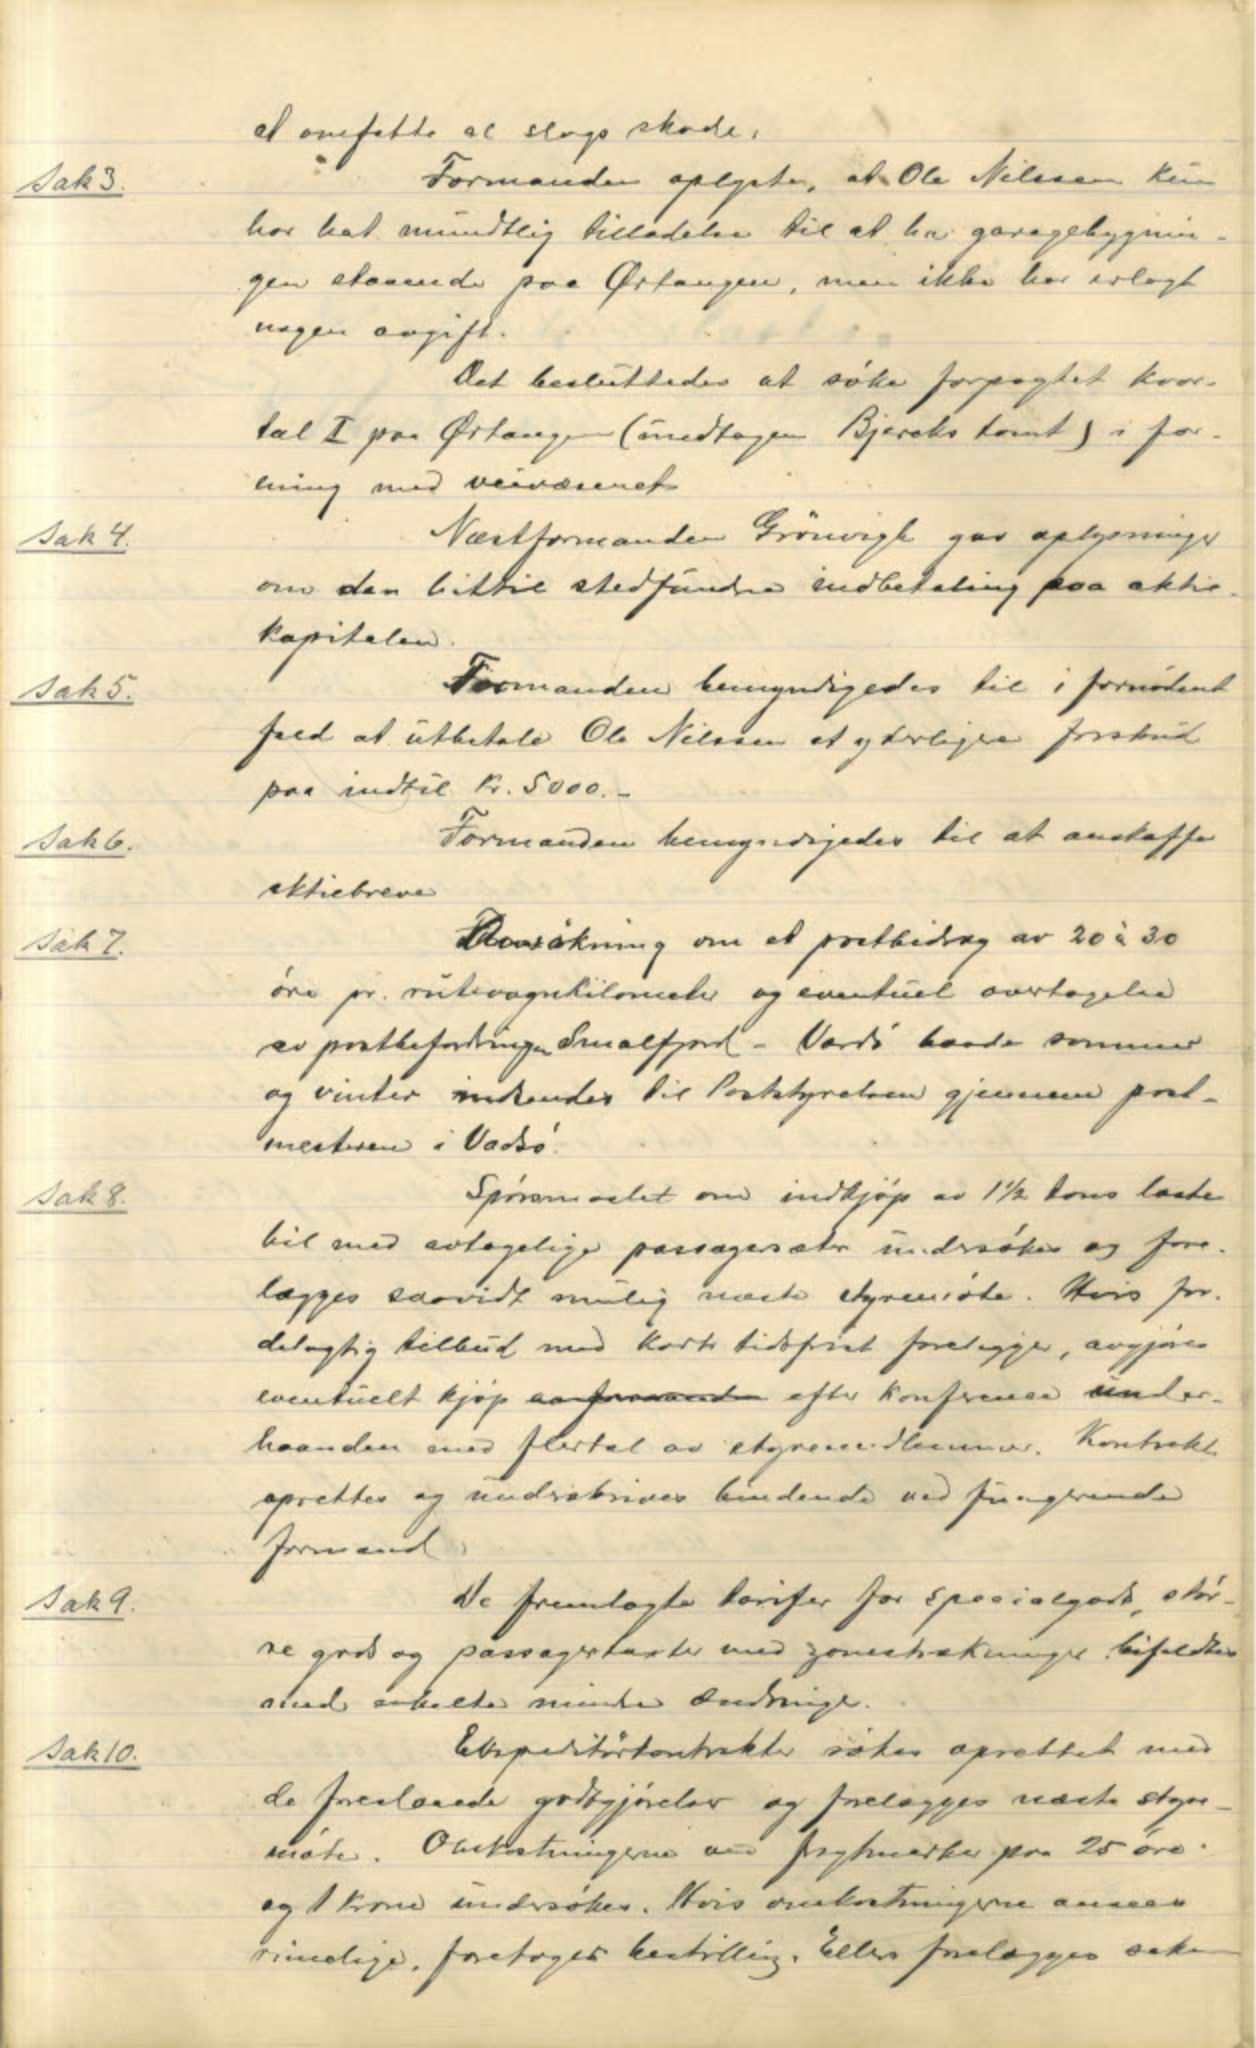 at omfatte al slags skade.
Sak 3. Formanden oplyste, at Ole Nilssen kun
har hat mundtlig tilladelse til at ha garagebygnin-
gen staaende paa Ørtangen, men ikke har erlagt
nogen avgift.
Det besluttedes at söke forpagtet kvar-
tal I paa Ørtangen (undtagen Bjercks tomt) i for-
ening med veivæsenet
Sak 4. Næstformanden Grönvigh gav oplysninger
om den hittil stedfundne indbetaling paa aktie-
kapitalen.
Sak 5. Formanden bemyndigedes til i fornödent
fald at utbetale Ole Nilssen et yderligere forskud
paa indtil kr. 5000.-
Sak 6. Formanden bemyndigedes til at anskaffe
aktiebreve
Sak 7. Ansökning om et postbidrag av 20 à 30
öre pr. rutevognkilometer og eventuel overtagelse
av postbefordringen Smalfjord - Vardö baade sommer
og vinter indsendes til Poststyrelsen gjennem post-
mesteren i Vadsö.
Sak 8. Spörsmaalet om indkjöp av 1½ tons laste
bil med avtagelige passagersæter undersökes og fore-
lægges saavidt mulig næste styremöte. Hvis for-
delagtig tilbud med kort tidsfrist foreligger, avgjöres
eventuelt kjöp av formanden efter konferense under-
haanden med flertal av styremedlemmer. Kontrakt
oprettes og underskrives bindende ved fungerende
formand.
Sak 9. De fremlagte tarifer for specialgods, stör-
re gods og passagertakster med zonestrækninger bifaldtes
med enkelte mindre ændringer.
Sak 10. Ekspeditörkontrakter sökes oprettet med
de foreslaaede godtgjörelser og forelægges næste styre-
möte. Omkostningerne ved fragtmerker paa 25 öre
og 1 krone undersökes. Hvis omkostningerne ansees
rimelige, foretages bestilling. Ellers forelægges saken